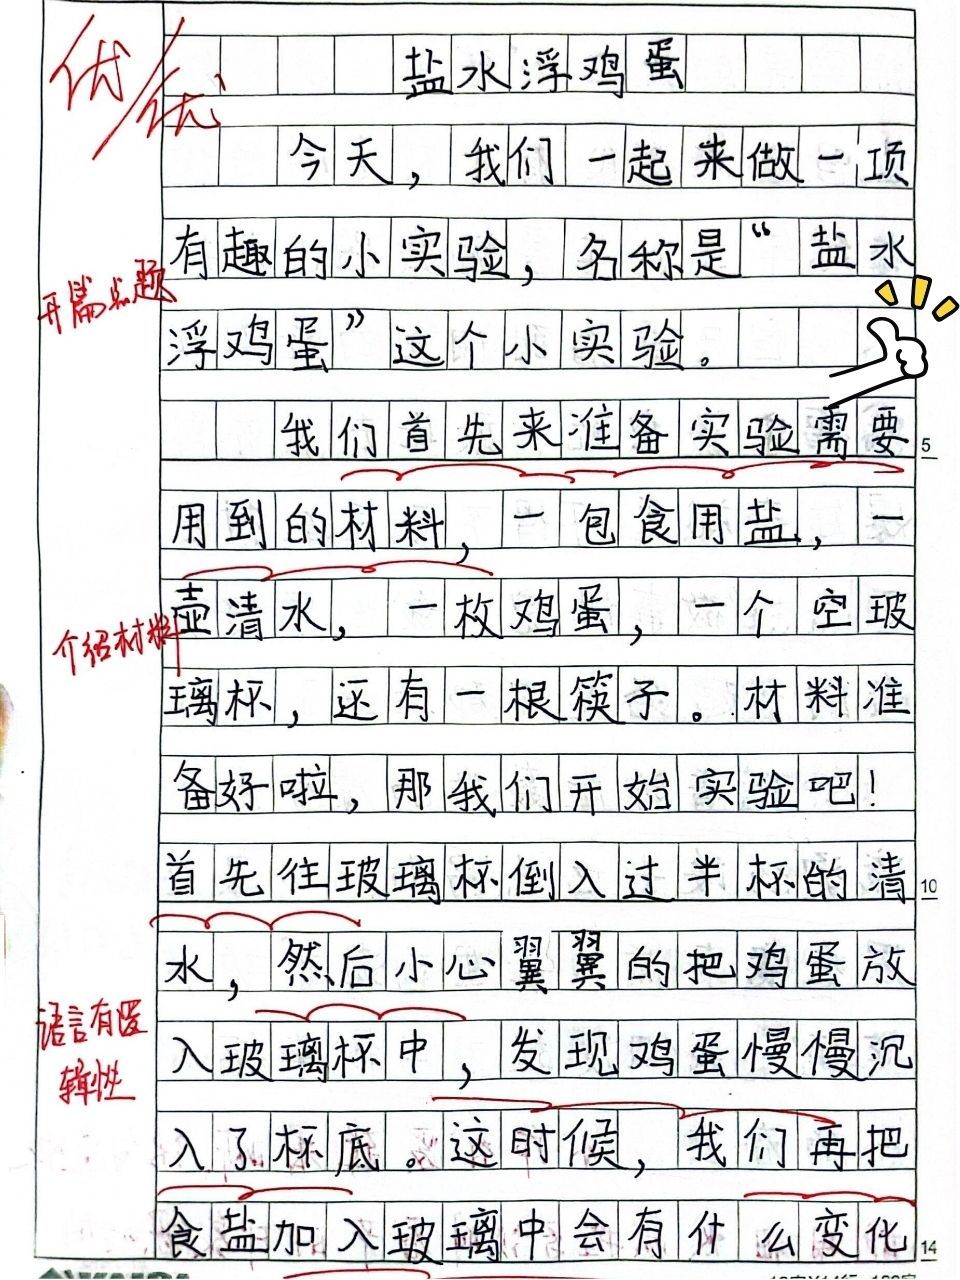 优/优
盐水浮鸡蛋
今天，我们一起来做一项
有趣的小实验，名称是“盐水
开篇点题
浮鸡蛋”这个小实验。
我们首先来准备实验需要
5
用到的材料，一包食用盐，一
壶清水，一枚鸡蛋，一个空玻
介绍材料
璃杯，还有一根筷子。材料准
备好啦，那我们开始实验吧！
首先往玻璃杯倒入过半杯的清
10
水，然后小心翼翼的把鸡蛋放
语言有逻
入玻璃杯中，发现鸡蛋慢慢沉
辑性
入了杯底。这时候，我们再把
食盐加入玻璃中会有什么变化
14